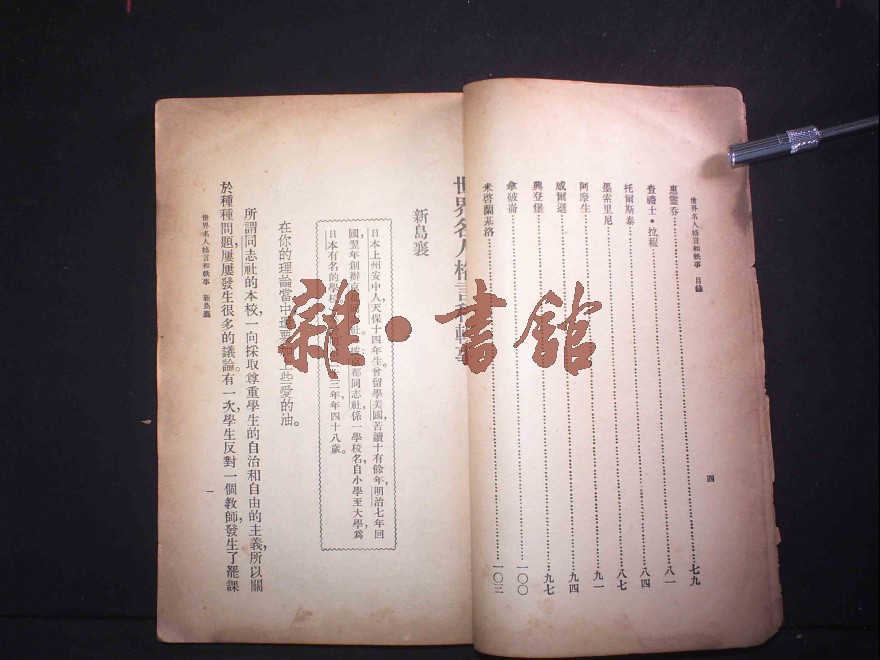 世界名人格言和軼事 目錄
四
惠靈吞…七九
查禮士・拉穆…八一
托爾斯泰…八四
墨索里尼…八七
阿摩生…九一
威爾遜…九四
興登堡…九七
拿破崙…一〇〇
米啓蘭基洛…一〇三
世界名人格言和軼事
新島襄
日本上州安中人，天保十四年生。曾留學美國，苦讀十有餘年，明治七年回
國，翌年創辦京都同志社。按京都同志社係一學校名，自小學至大學，爲
日本有名的學校 三年，年四十八歲。
在你的理論當中還要加上些愛的油。
所謂同志社的本校，一向採取尊重學生的自治和自由的主義，所以關
於種種問題，屢屢發生很多的議論。有一次，學生反對一個教師，發生了罷課
世界名人格言和軼事 新島襄
一
雜・書館